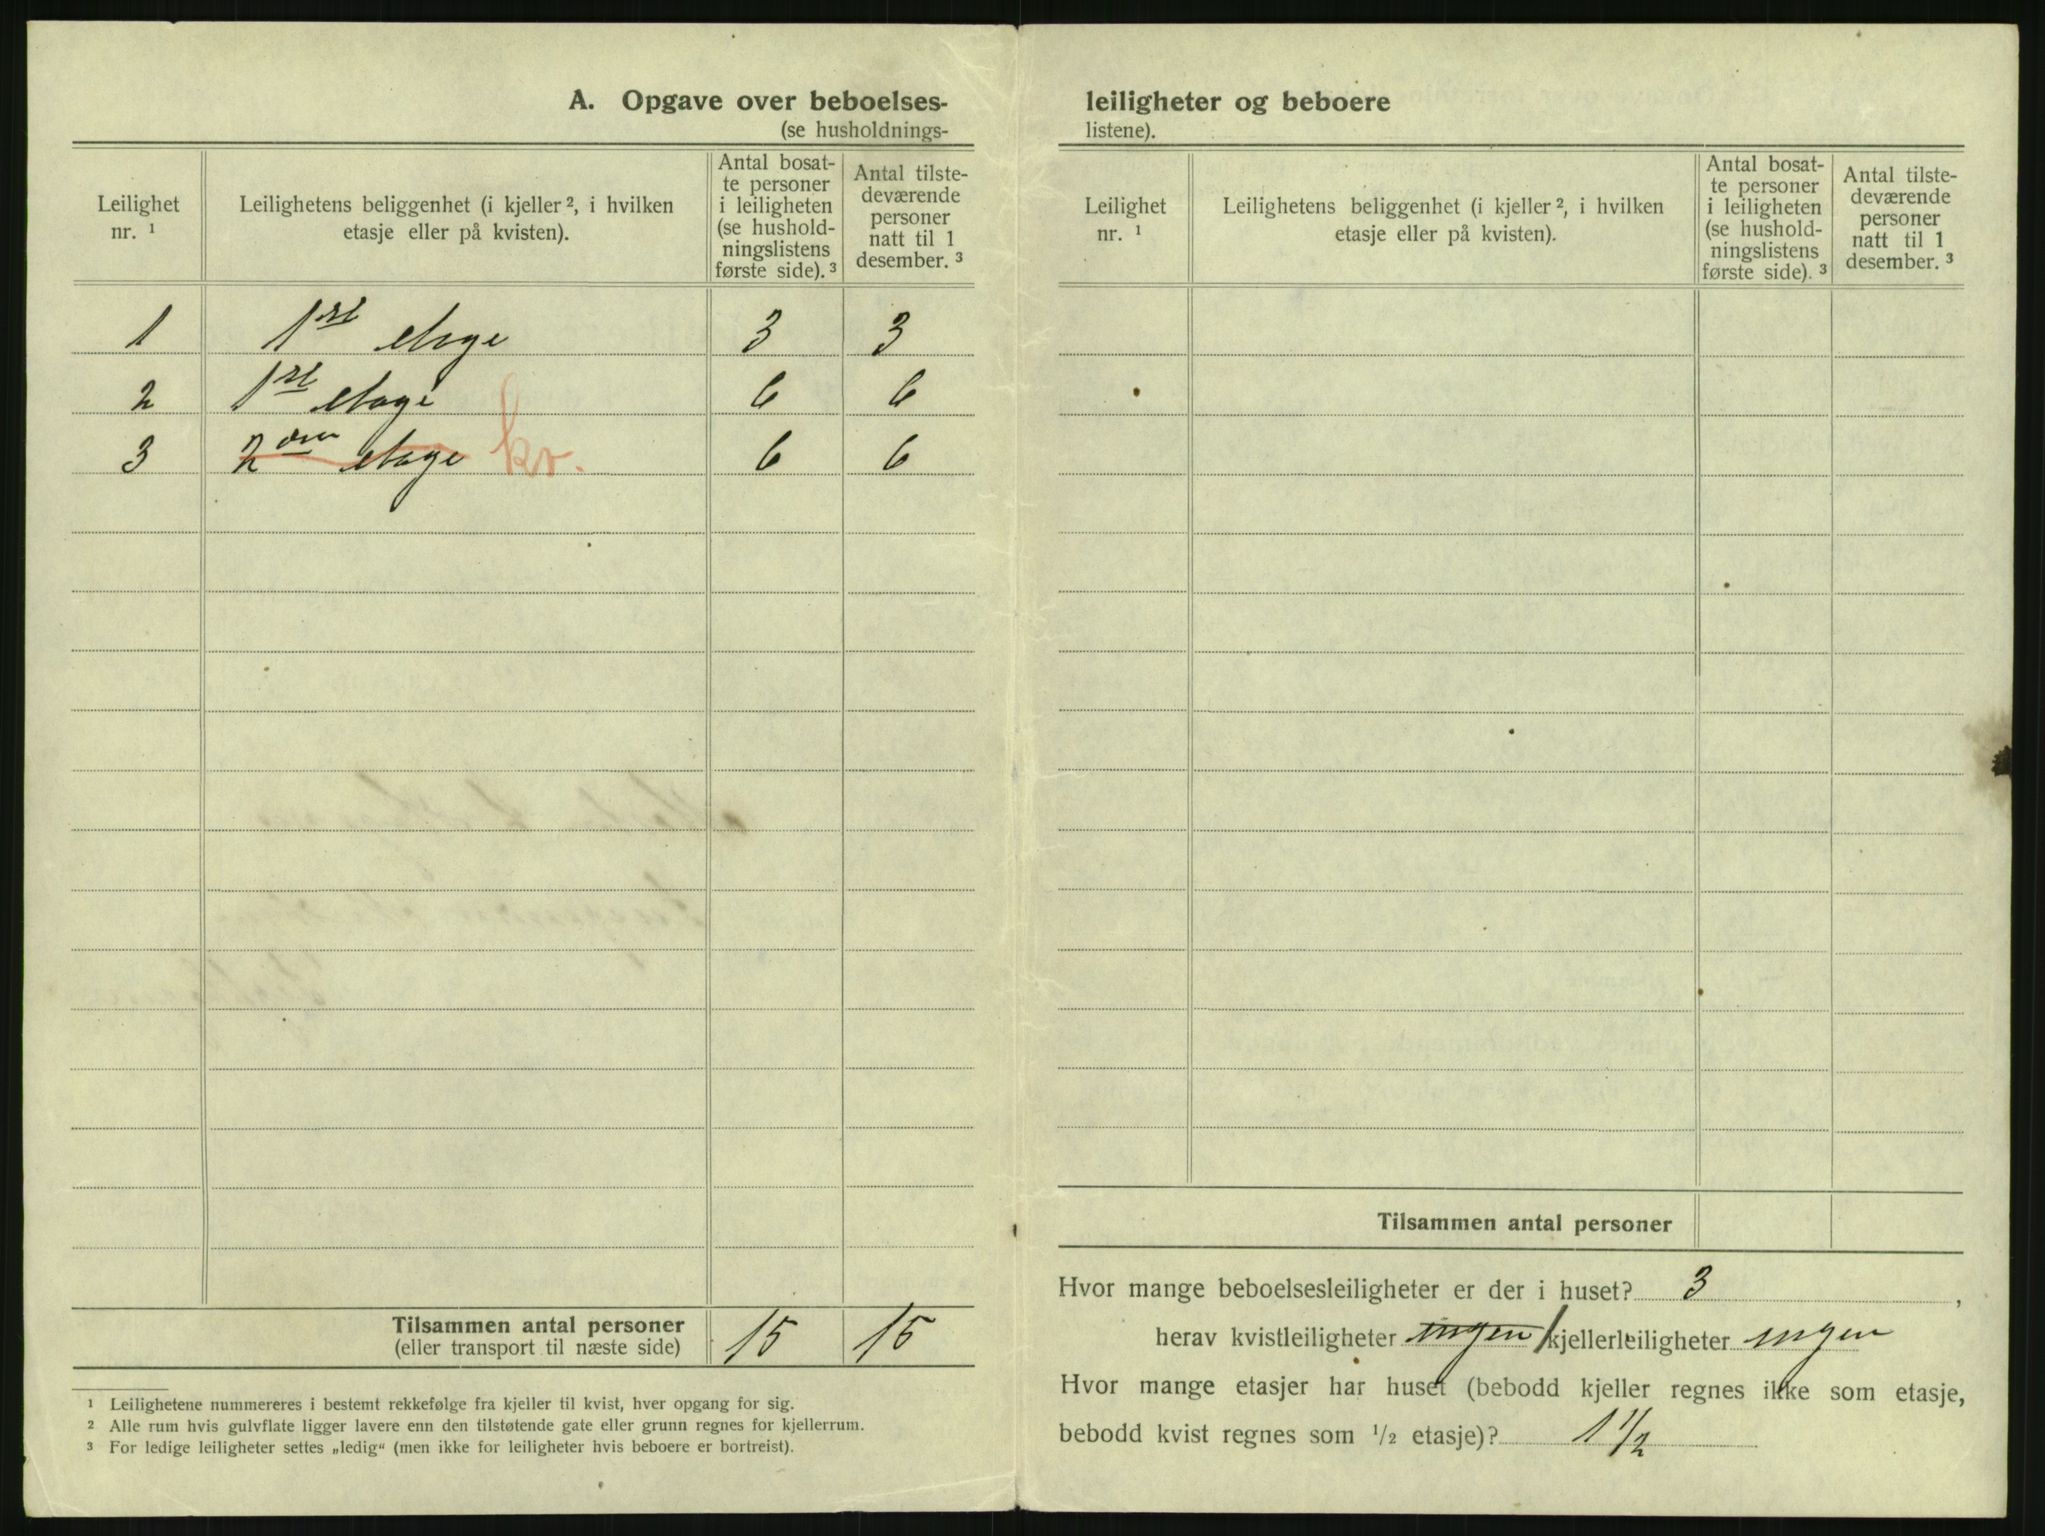 A. Opgave over beboelses-
(se husholdnings-
Leilighet
nr. ¹
Leilighetens beliggenhet (i kjeller ², i hvilken
etasje eller på kvisten).
Antal bosat-
te personer
i leiligheten
(se hushold-
ningslistens
første side). ³
Antal tilste-
deværende
personer
natt til 1
desember. ³
1 1ste etage 3 3
2 1ste etage 6 6
3 2den etage kv. 6 6
Tilsammen antal personer
(eller transport til næste side)
15 15
¹ Leilighetene nummereres i bestemt rekkefølge fra kjeller til kvist, hver opgang for sig.
² Alle rum hvis gulvflate ligger lavere enn den tilstøtende gate eller grunn regnes for kjellerrum.
³ For ledige leiligheter settes „ledig“ (men ikke for leiligheter hvis beboere er bortreist).
leiligheter og beboere
listene).
Leilighet
nr. ¹
Leilighetens beliggenhet (i kjeller ², i hvilken
etasje eller på kvisten).
Antal bosat-
te personer
i leiligheten
(se hushold-
ningslistens
første side). ³
Antal tilste-
deværende
personer
natt til 1
desember. ³
Tilsammen antal personer
Hvor mange beboelsesleiligheter er der i huset? 3 ,
herav kvistleiligheter ingen 1 kjellerleiligheter ingen
Hvor mange etasjer har huset (bebodd kjeller regnes ikke som etasje,
bebodd kvist regnes som ¹/₂ etasje)? 1 1/2